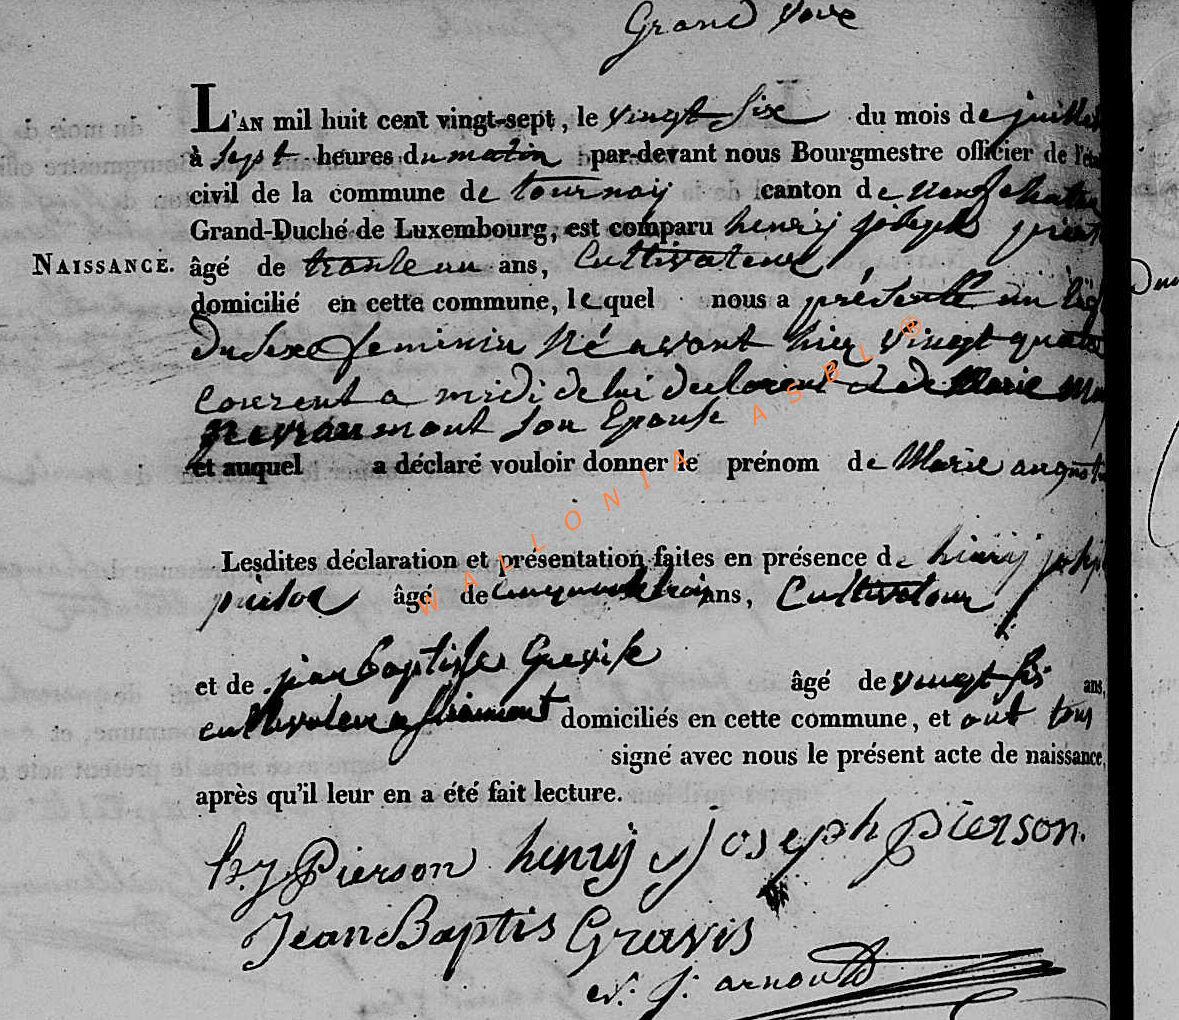 Grand Voire
L'AN mil huit cent vingt-sept, le vingt Six du mois de juillet
à Sept heures du matin par-devant nous Bourgmestre officier de l'état
civil de la commune de tournay canton de neufchateau
Grand-Duché de Luxembourg, est comparu henry joseph
NAISSANCE. âgé de trante un ans, Cultivateur
domicilié en cette commune, lequel nous a présenté un
du Sexe feminin Né avant hier vingt quatre
courent a midi de lui declarent et de Marie
mont Son Epouse
et auquel a déclaré vouloir donner le prénom de Marie
Lesdites déclaration et présentation faites en présence de
âgé de cinquante trois ans, Cultivateur
et de jean Baptiste Gravise âgé de vingt six ans,
cultivateur a domiciliés en cette commune, et ont tous
signé avec nous le présent acte de naissance,
après qu'il leur en a été fait lecture.
h. j. Pierson henry joseph pierson.
Jean Baptis Gravis
j. arnould
WALLONIA ASBL ®